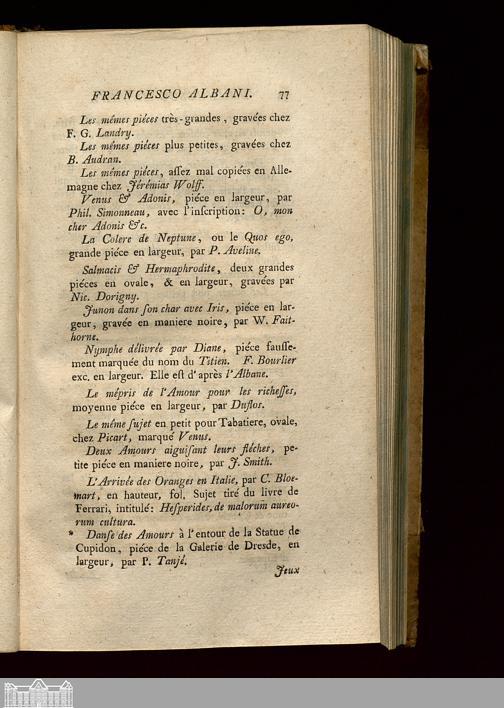 FRANCESCO ALBANI. 77
Les mémes piéces très-grandes, gravées chez
F. G. Landry.
Les mémes piéces plus petites, gravées chez
B. Audran.
Les mémes piéces, aſſez mal copiées en Alle-
magne chez Jérémias Wolff.
Venus & Adonis, piéce en largeur, par
Phil. Simonneau, avec l'inſcription: O, mon
cher Adonis &c.
La Colere de Neptune, ou le Quos ego,
grande piéce en largeur, par P. Aveline.
Salmacis & Hermaphrodite, deux grandes
piéces en ovale, & en largeur, gravées par
Nic. Dorigny.
Junon dans ſon char avec Iris, piéce en lar-
geur, gravée en maniere noire, par W. Fait-
horne.
Nymphe délivrée par Diane, piéce fauſſe-
ment marquée du nom du Titien. F. Bourlier
exc. en largeur. Elle eſt d'après l'Albane.
Le mépris de l'Amour pour les richeſſes,
moyenne piéce en largeur, par Duflos.
Le méme ſujet en petit pour Tabatiere, ovale,
chez Picart, marqué Venus.
Deux Amours aiguiſant leurs fléches, pe-
tite piéce en maniere noire, par J. Smith.
L'Arrivée des Oranges en Italie, par C. Bloe-
mart, en hauteur, fol. Sujet tiré du livre de
Ferrari, intitulé: Heſperides, de malorum aureo-
rum cultura.
* Danſe des Amours à l'entour de la Statue de
Cupidon, piéce de la Galerie de Dresde, en
largeur, par P. Tanjé.
Jeux